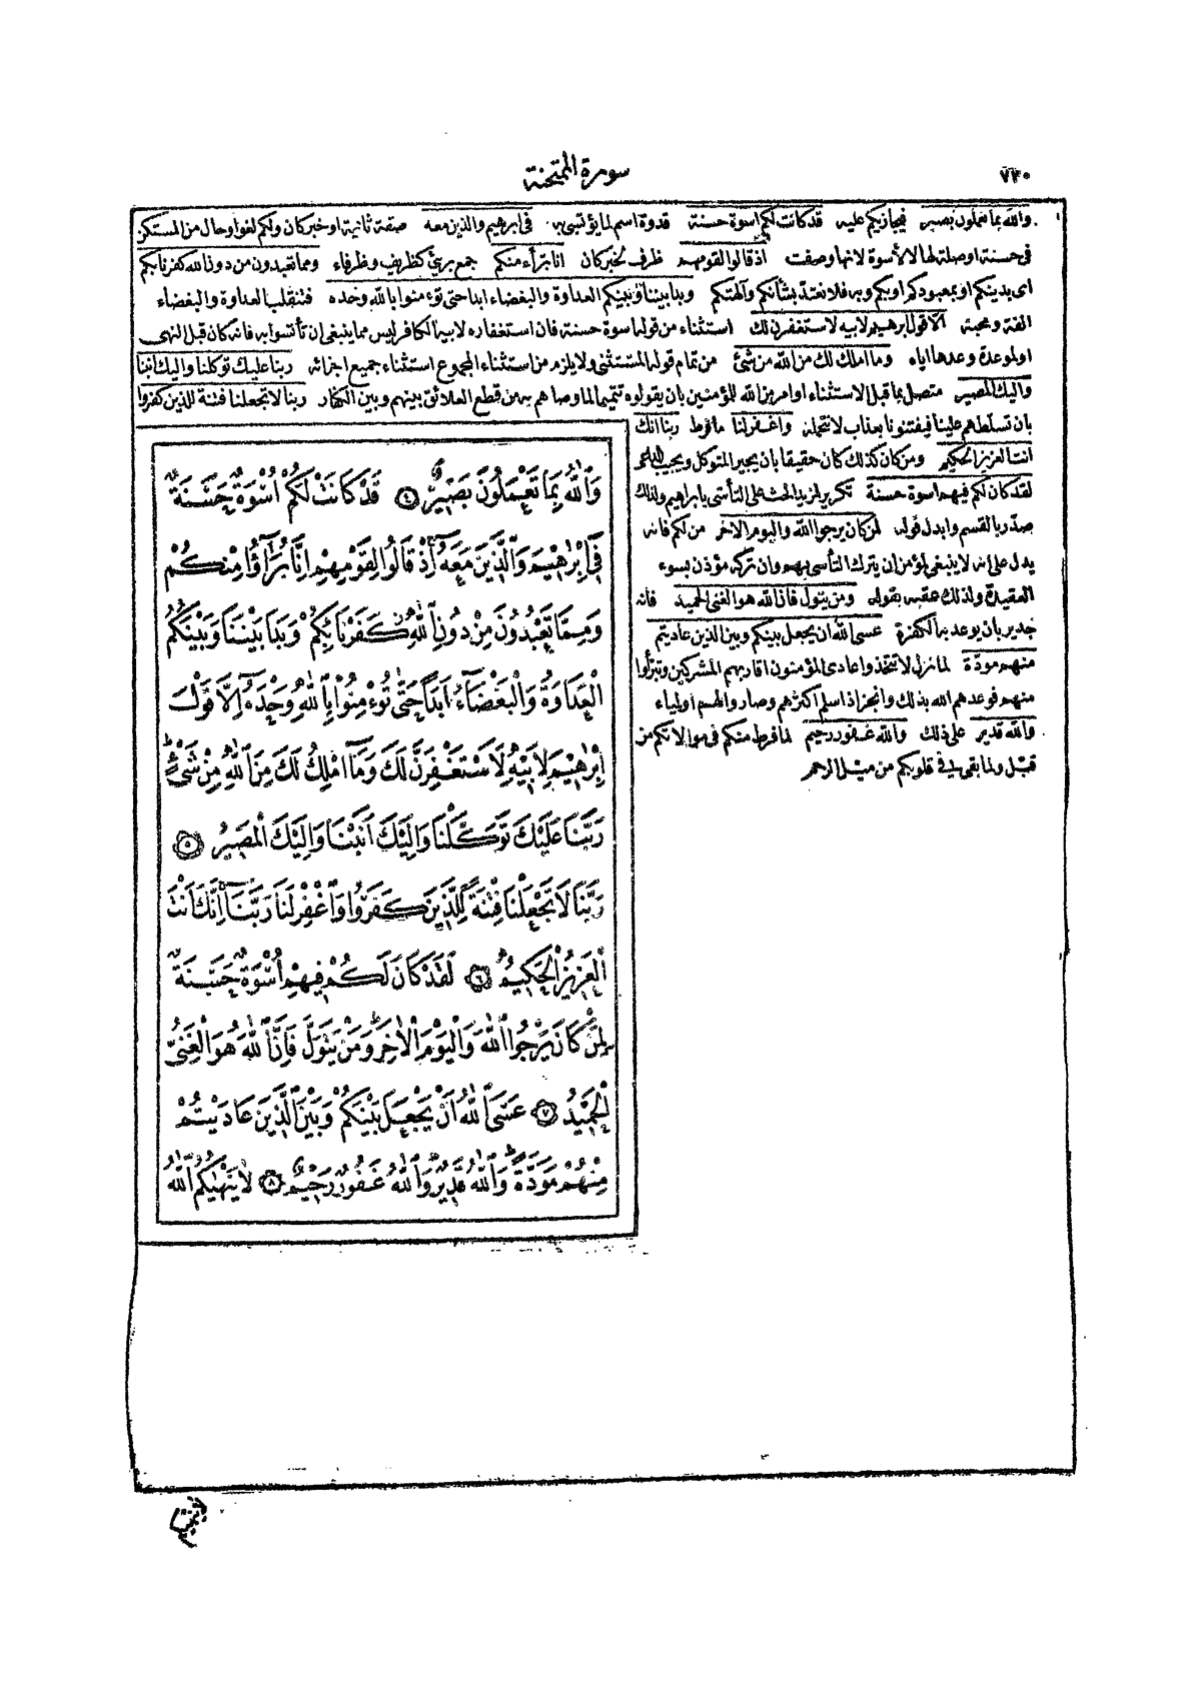 ٧٣٠
سورة الممتحنة
والله بما تعملون بصير فيجازيكم عليه قد كانت لكم اسوة حسنة قدوة اسم لما يؤتسى به في ابرهيم والذين معه صفة ثانية او خبر كان ولكم لغو او حال من المستكن
في حسنة او صلة لها لا لأسوة لانها وصفت اذ قالوا لقومهم ظرف لخبر كان انا برآء منكم جمع برئ كظريف وظرفاء ومما تعبدون من دون الله كفرنا بكم
اى بدينكم او بمعبودكم او بكم وبه فلا نعتد بشأنكم وآلهتكم وبدا بيننا وبينكم العداوة والبغضاء ابدا حتى تؤمنوا بالله وحده فتنقلب العداوة والبغضاء
الفة ومحبة الا قول ابرهيم لابيه لاستغفرن لك استثناء من قوله اسوة حسنة فان استغفاره لابيه الكافر ليس مما ينبغى ان تأتسوا به فانه كان قبل النهى
او لموعدة وعدها اياه وما املك لك من الله من شئ من تمام قوله المستثنى ولا يلزم من استثناء المجموع استثناء جميع اجزائه ربنا عليك توكلنا واليك انبنا
واليك المصير متصل بما قبل الاستثناء او امر من الله للمؤمنين بان يقولوه تتميما لما وصاهم به من قطع العلائق بينهم وبين الكفار ربنا لا تجعلنا فتنة للذين كفروا
بان تسلطهم علينا فيفتنونا بعذاب لا نتحمله واغفر لنا ما فرط ربنا انك
انت العزيز الحكيم ومن كان كذلك كان حقيقا بان يجير المتوكل ويجيب الداعى
لقد كان لكم فيهم اسوة حسنة تكرير لمزيد الحث على التأسى بابراهيم ولذلك
صدر بالقسم وابدل قوله لمن كان يرجوا الله واليوم الاخر من لكم فانه
يدل على انه لا ينبغى لمؤمن ان يترك التأسى بهم وان تركه مؤذن بسوء
العقيدة ولذلك عقبه بقوله ومن يتول فان الله هو الغنى الحميد فانه
جدير بان يوعد به الكفرة عسى الله ان يجعل بينكم وبين الذين عاديتم
منهم مودة لما نزل لا تتخذوا عادى المؤمنون اقاربهم المشركين وتبرأوا
منهم فوعدهم الله بذلك وانجز اذ اسلم اكثرهم وصاروا لهم اولياء
والله قدير على ذلك والله غفور رحيم لما فرط منكم في موالاتكم من
قبل ولما بقى في قلوبكم من ميل الرحم
وَاللّٰهُ بِمَا تَعْمَلُونَ بَصِيرٌ ٤ قَدْ كَانَتْ لَكُمْ اُسْوَةٌ حَسَنَةٌ
فِى اِبْرٰهِيمَ وَالَّذِينَ مَعَهُ اِذْ قَالُوا لِقَوْمِهِمْ اِنَّا بُرَءٰٓؤُا مِنْكُمْ
وَمِمَّا تَعْبُدُونَ مِنْ دُونِ اللّٰهِ كَفَرْنَا بِكُمْ وَبَدَا بَيْنَنَا وَبَيْنَكُمُ
الْعَدَاوَةُ وَالْبَغْضَاءُ اَبَدًا حَتّٰى تُؤْمِنُوا بِاللّٰهِ وَحْدَهُ اِلَّا قَوْلَ
اِبْرٰهِيمَ لِاَبِيهِ لَاَسْتَغْفِرَنَّ لَكَ وَمَا اَمْلِكُ لَكَ مِنَ اللّٰهِ مِنْ شَىْءٍ
رَبَّنَا عَلَيْكَ تَوَكَّلْنَا وَاِلَيْكَ اَنَبْنَا وَاِلَيْكَ الْمَصِيرُ ٥
رَبَّنَا لَا تَجْعَلْنَا فِتْنَةً لِلَّذِينَ كَفَرُوا وَاغْفِرْ لَنَا رَبَّنَا اِنَّكَ اَنْتَ
الْعَزِيزُ الْحَكِيمُ ٦ لَقَدْ كَانَ لَكُمْ فِيهِمْ اُسْوَةٌ حَسَنَةٌ
لِمَنْ كَانَ يَرْجُوا اللّٰهَ وَالْيَوْمَ الْاٰخِرَ وَمَنْ يَتَوَلَّ فَاِنَّ اللّٰهَ هُوَ الْغَنِىُّ
الْحَمِيدُ ٧ عَسَى اللّٰهُ اَنْ يَجْعَلَ بَيْنَكُمْ وَبَيْنَ الَّذِينَ عَادَيْتُمْ
مِنْهُمْ مَوَدَّةً وَاللّٰهُ قَدِيرٌ وَاللّٰهُ غَفُورٌ رَحِيمٌ ٨ لَا يَنْهٰيكُمُ اللّٰهُ